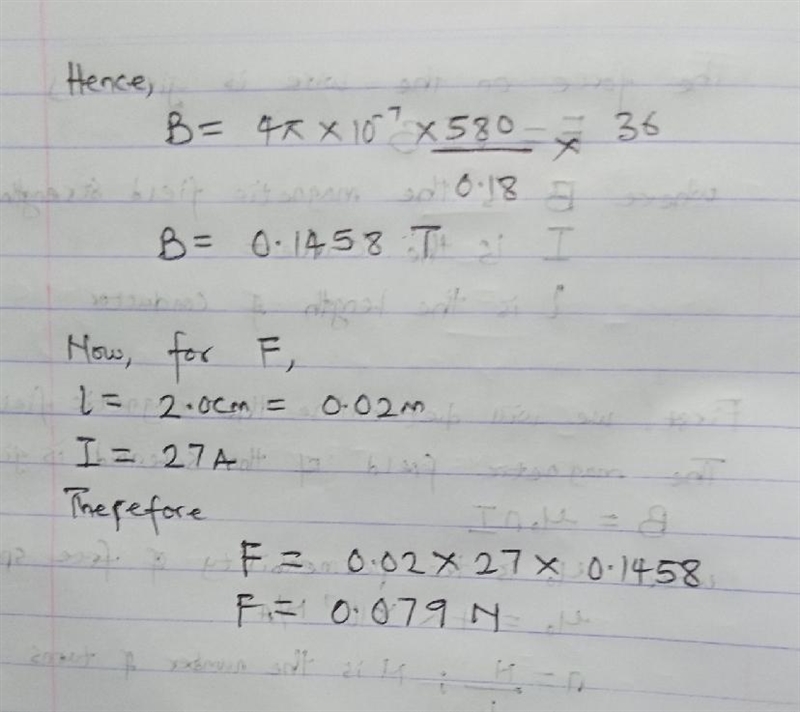 Hence,
B = 4π × 10⁻⁷ × 580 × 36
0.18
B = 0.1458 T
Now, for F,
l = 2.0cm = 0.02m
I = 27A
Therefore
F = 0.02 × 27 × 0.1458
F = 0.079 N